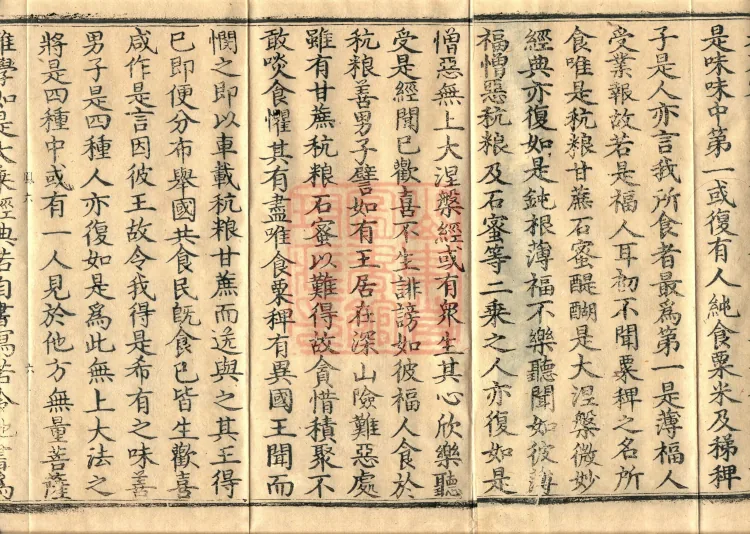 是味味中第一或復有人純食粟米及稊稗
子是人亦言我所食者最爲第一是薄福人
受業報故若是福人耳初不聞粟稗之名所
食唯是秔粮甘蔗石蜜醍醐是大涅槃微妙
經典亦復如是鈍根薄福不樂聽聞如彼薄
福憎惡秔粮及石蜜等二乘之人亦復如是
憎惡無上大涅槃經或有衆生其心欣樂聽
受是經聞已歡喜不生誹謗如彼福人食於
秔粮善男子譬如有王居在深山險難惡處
雖有甘蔗秔粮石蜜以難得故貪惜積聚不
敢啖食懼其有盡唯食粟稗有異國王聞而
憫之即以車載秔粮甘蔗而送與之其王得
已即便分布舉國共食民旣食已皆生歡喜
咸作是言因彼王故令我得是希有之味善
男子是四種人亦復如是爲此無上大法之
將是四種中或有一人見於他方無量菩薩
雖學如是大乘經典若自書寫若令他書爲